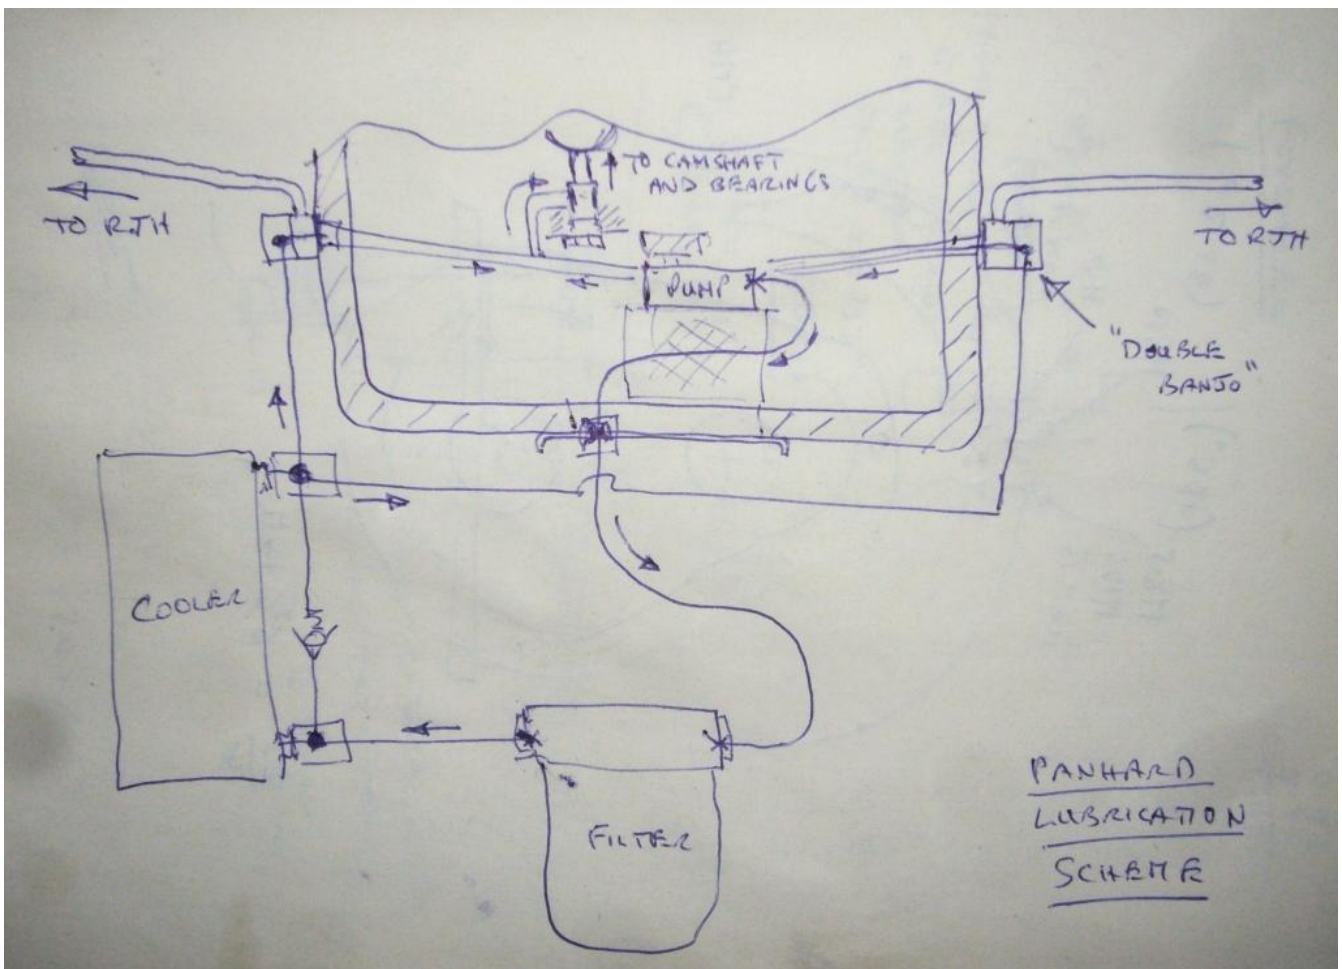 TO CAMSHAFT
AND BEARINGS
TO RJH
TO RJH
PUMP
"DOUBLE
BANJO"
COOLER
FILTER
PANHARD
LUBRICATION
SCHEME